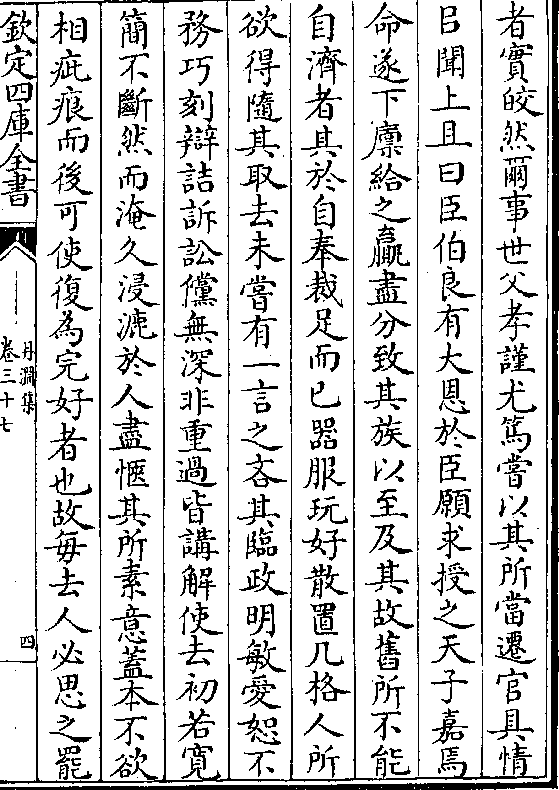 者實皎然爾事世父孝謹尤篤嘗以其所當遷官具情
㠯聞上且曰臣伯良有大恩於臣願求授之天子嘉焉
命遂下廪給之贏盡分致其族以至及其故舊所不能
自濟者其於自奉裁足而已器服玩好散置几格人所
欲得隨其取去未嘗有一言之吝其臨政明敏愛恕不
務巧刻辯詰訴訟儻無深非重過皆講解使去初若寛
簡不斷然而淹久浸漉於人盡愜其所素意蓋本不欲
相疵痕而後可使復為完好者也故每去人必思之罷
欽定四庫全書
丹淵集
卷三十七
四